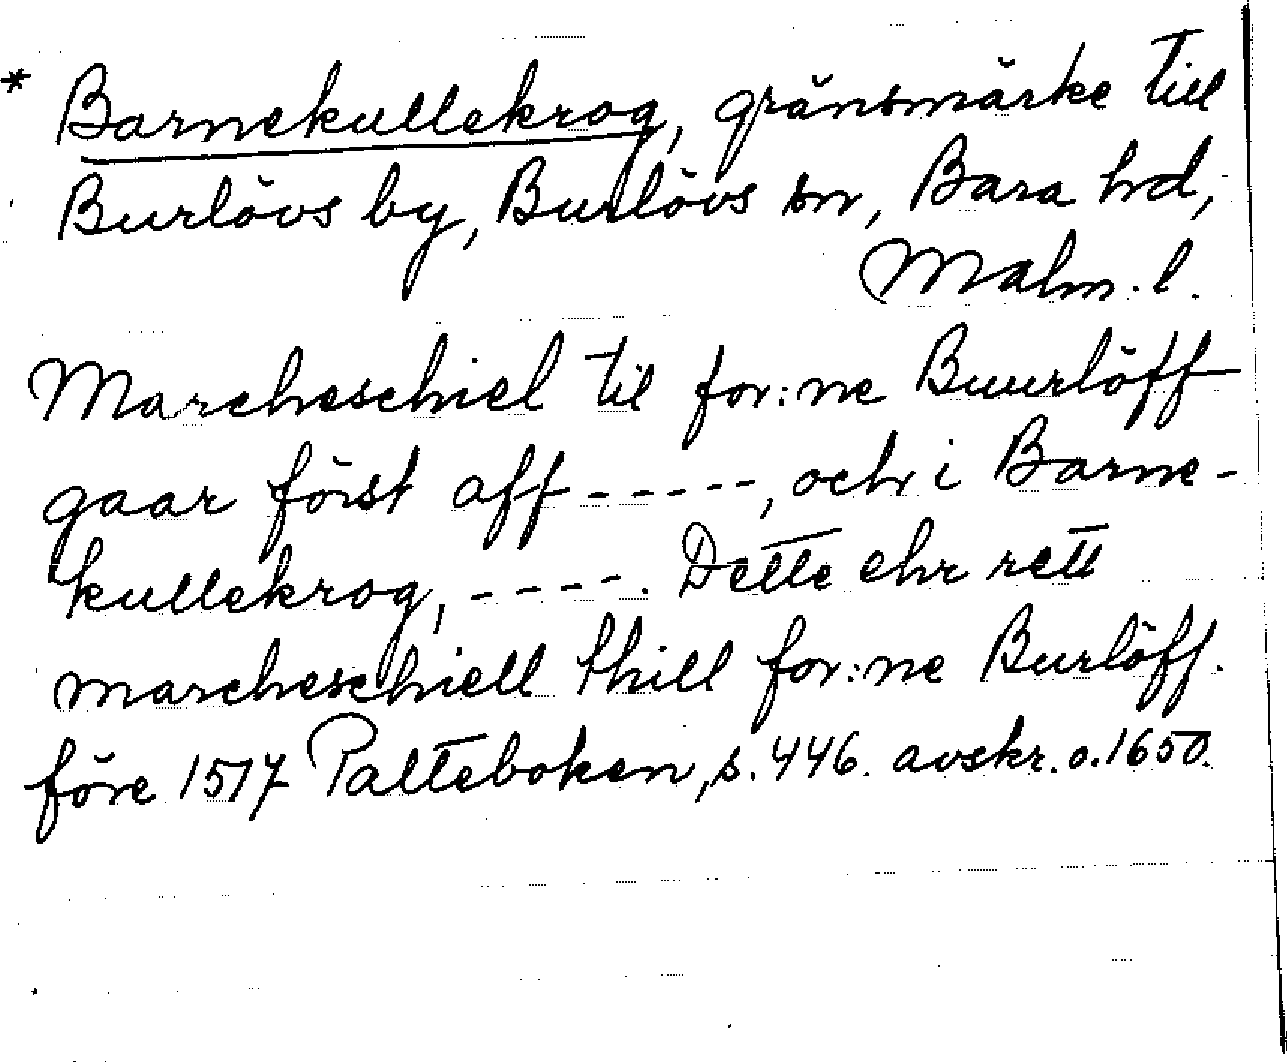 * Barnekullekrog, gränsmärke till
Burlövs by, Burlövs sn, Bara hd,
Malm. l.
Marcheschiel til for:ne Buurlöff
gaar först aff - - - - -, och i Barne-
kullekrog, - - - -. Dette ehr rett
marcheschiell thill for:ne Burlöff.
före 1517 Palteboken, s. 446. avskr. o. 1650.